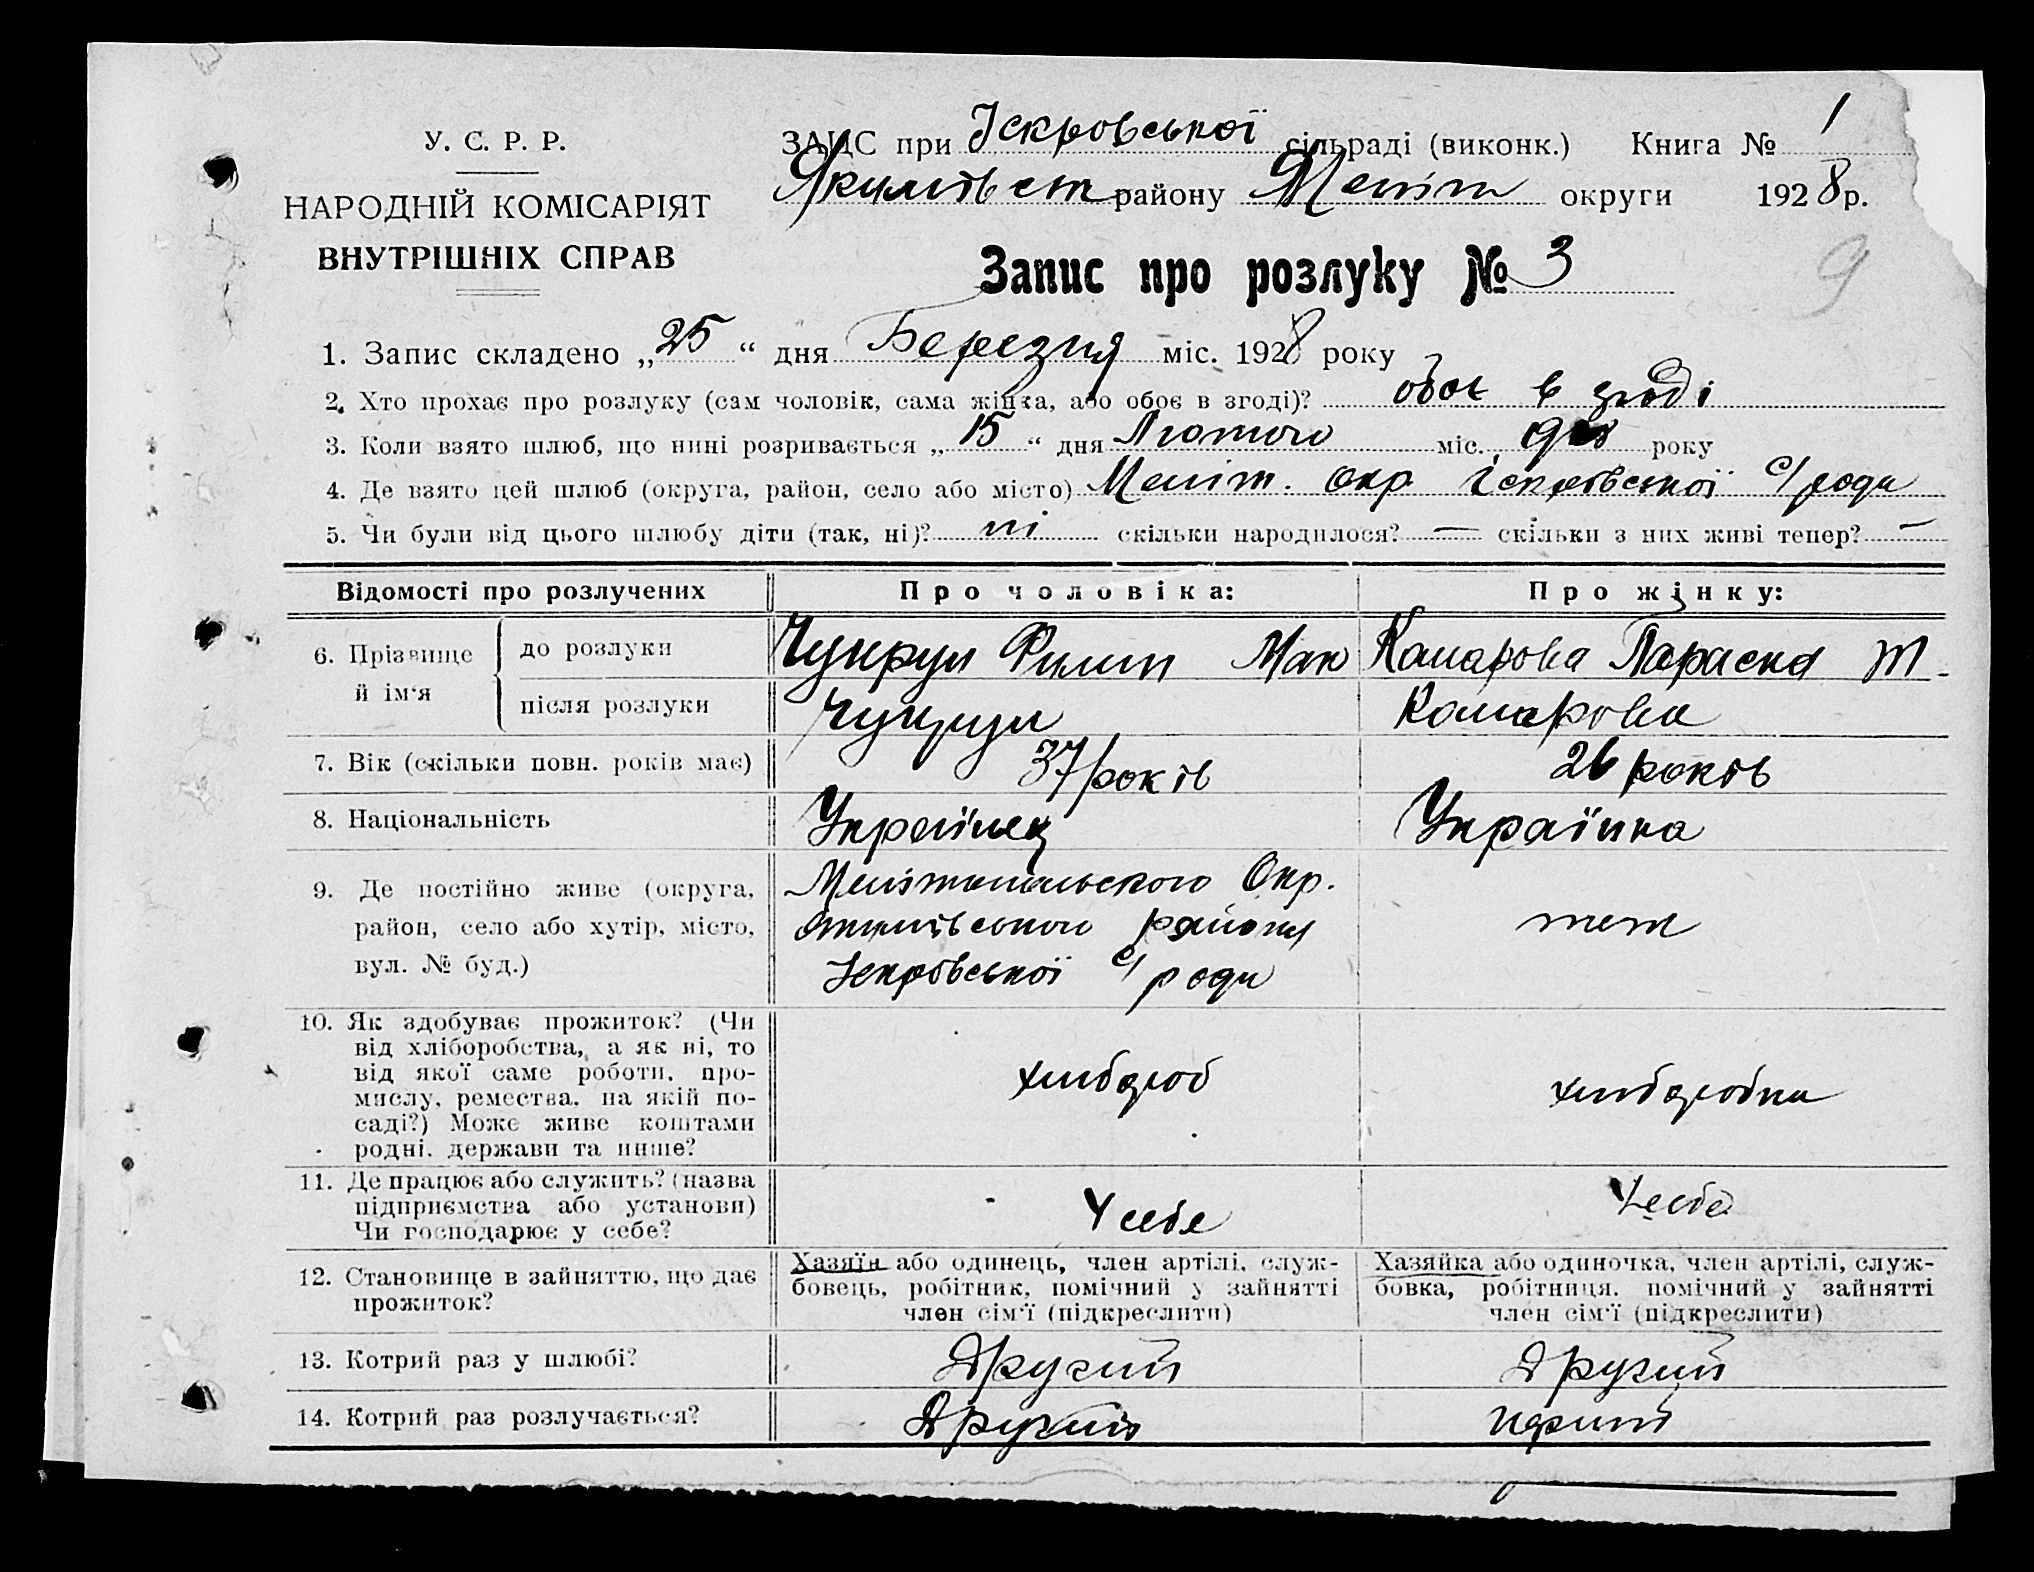 У. С. Р. Р.
НАРОДНІЙ КОМІСАРІЯТ
ВНУТРІШНІХ СПРАВ
ЗАЦС при Іскровської сільраді (виконк.) Книга № 1
Якимівськ району Меліт округи 1928 р.
9
Запис про розлуку № 3
1. Запис складено „25“ дня Березня міс. 1928 року
2. Хто прохає про розлуку (сам чоловік, сама жінка, або обоє в згоді)? обоє в згоді
3. Коли взято шлюб, що нині розривається „15“ дня Лютого міс. року
4. Де взято цей шлюб (округа, район, село або місто) Меліт. окр. Іскрівської с/ради
5. Чи були від цього шлюбу діти (так, ні)? ні скільки народилося? — скільки з них живі тепер? —
Відомості про розлучених Про чоловіка: Про жінку:
6. Прізвище й ім‘я до розлуки Чункрул Филип Мак Комарова Параска Т
після розлуки Комарова
7. Вік (скільки повн. років має) 37 років 26 років
8. Національність Українец Українка
9. Де постійно живе (округа, Мелітопільського Окр.
район, село або хутір, місто, Якимівського района теж
вул. № буд.) Іскрівської с/ради
10. Як здобуває прожиток? (Чи
від хліборобства, а як ні, то
від якої саме роботи, про- хлибороб хлиборобка
мислу, ремества, на якій по-
саді?) Може живе коштами
родні, держави та инше?
11. Де працює або служить? (назва
підприємства або установи) У себе У себе
Чи господарює у себе?
12. Становище в зайняттю, що дає прожиток? Хазяїн або одинець, член артілі, служ- Хазяйка або одиночка, член артілі, служ-
бовець, робітник, помічний у зайнятті бовка, робітниця, помічний у зайнятті
член сім‘ї (підкреслити) член сім‘ї (підкреслити)
13. Котрий раз у шлюбі? Другий Другий
14. Котрий раз розлучається? Другий